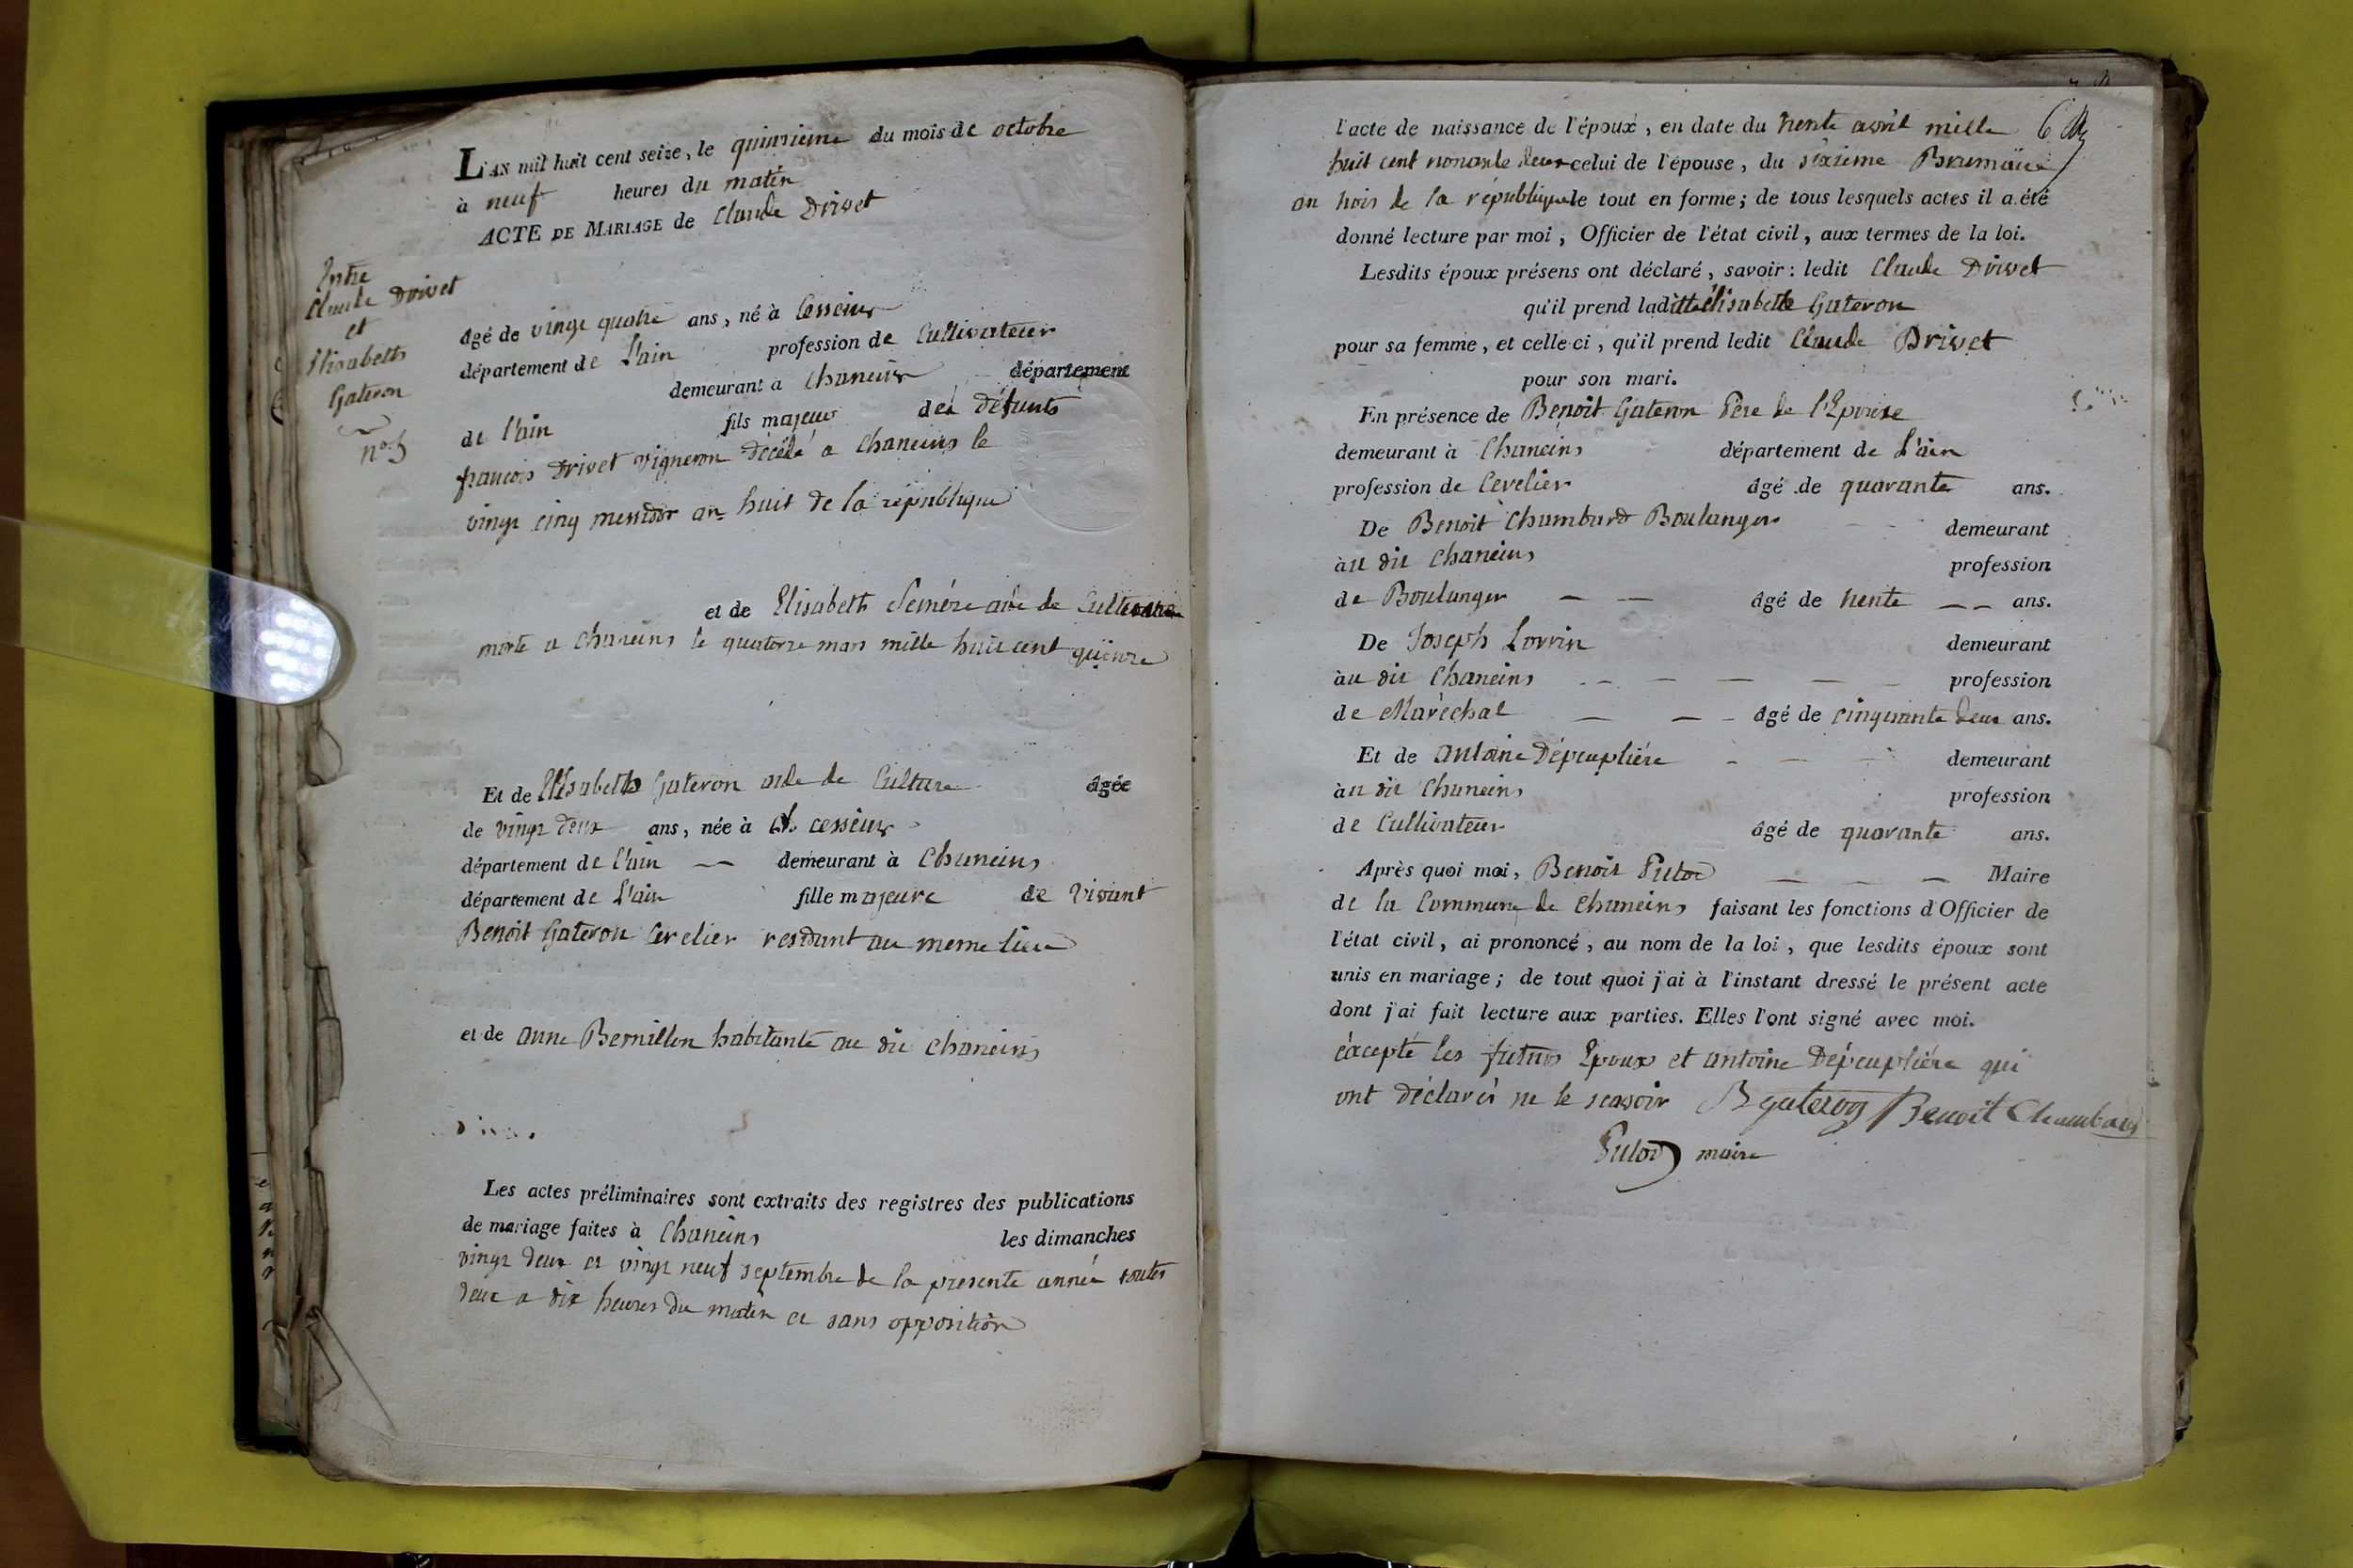 L'AN mil huit cent seize, le quinzieme du mois de octobre
à neuf heures du matin
ACTE DE MARIAGE de Claude Drivet
Entre
Claude Drivet
et
Elisabeth
Gateron
n° 5
âgé de vingt quatre ans, né à Cesseins
département de L'ain profession de Cultivateur
demeurant à Chaneins département
de l'ain fils majeur des défunts
francois Drivet vigneron décédé a Chaneins le
vingt cinq messidor an huit de la république
et de Elisabeth aide de Culture
morte a Chaneins le quatorze mars mille huit cent quinze
Et de Elisabeth Gateron aide de Culture âgée
de vingt deux ans, née à cesseins
département de l'ain demeurant à Chaneins
département de L'ain fille majeure de vivant
Benoit Gateron Cerclier residant au meme lieu
et de anne Bernillon habitante au dit chaneins
Les actes préliminaires sont extraits des registres des publications
de mariage faites à Chaneins les dimanches
vingt deux et vingt neuf septembre de la presente année toutes
deux a dix heures du matin et sans opposition
6
l'acte de naissance de l'époux, en date du trente avril mille
huit cent nonante deux celui de l'épouse, du sixieme Brumaire
an trois de la république le tout en forme; de tous lesquels actes il a été
donné lecture par moi, Officier de l'état civil, aux termes de la loi.
Lesdits époux présens ont déclaré, savoir: ledit Claude Drivet
qu'il prend ladite élisabeth Gateron
pour sa femme, et celle-ci, qu'il prend ledit Claude Drivet
pour son mari.
En présence de Benoit Gateron Pere de l'Epouse
demeurant à Chaneins département de L'ain
profession de Cerclier âgé de quarante ans.
De Benoit Chambard Boulanger demeurant
àu dit Chaneins profession
de Boulanger — — âgé de trente — — ans.
De Joseph Lorrin demeurant
àu dit Chaneins — — — — — profession
de Maréchal — — - âgé de cinquante deux ans.
Et de antoine Dépeupliére - — - demeurant
àu dit Chaneins profession
de Cultivateur âgé de quarante ans.
Après quoi moi, Benoit Putod — — — Maire
de la Commune de Chaneins faisant les fonctions d'Officier de
l'état civil, ai prononcé, au nom de la loi, que lesdits époux sont
unis en mariage; de tout quoi j'ai à l'instant dressé le présent acte
dont j'ai fait lecture aux parties. Elles l'ont signé avec moi.
éxcepté les futurs Epoux et antoine Dépeupliére qui
ont déclarés ne le scavoir B gateron Benoit Chambard
Putod maire